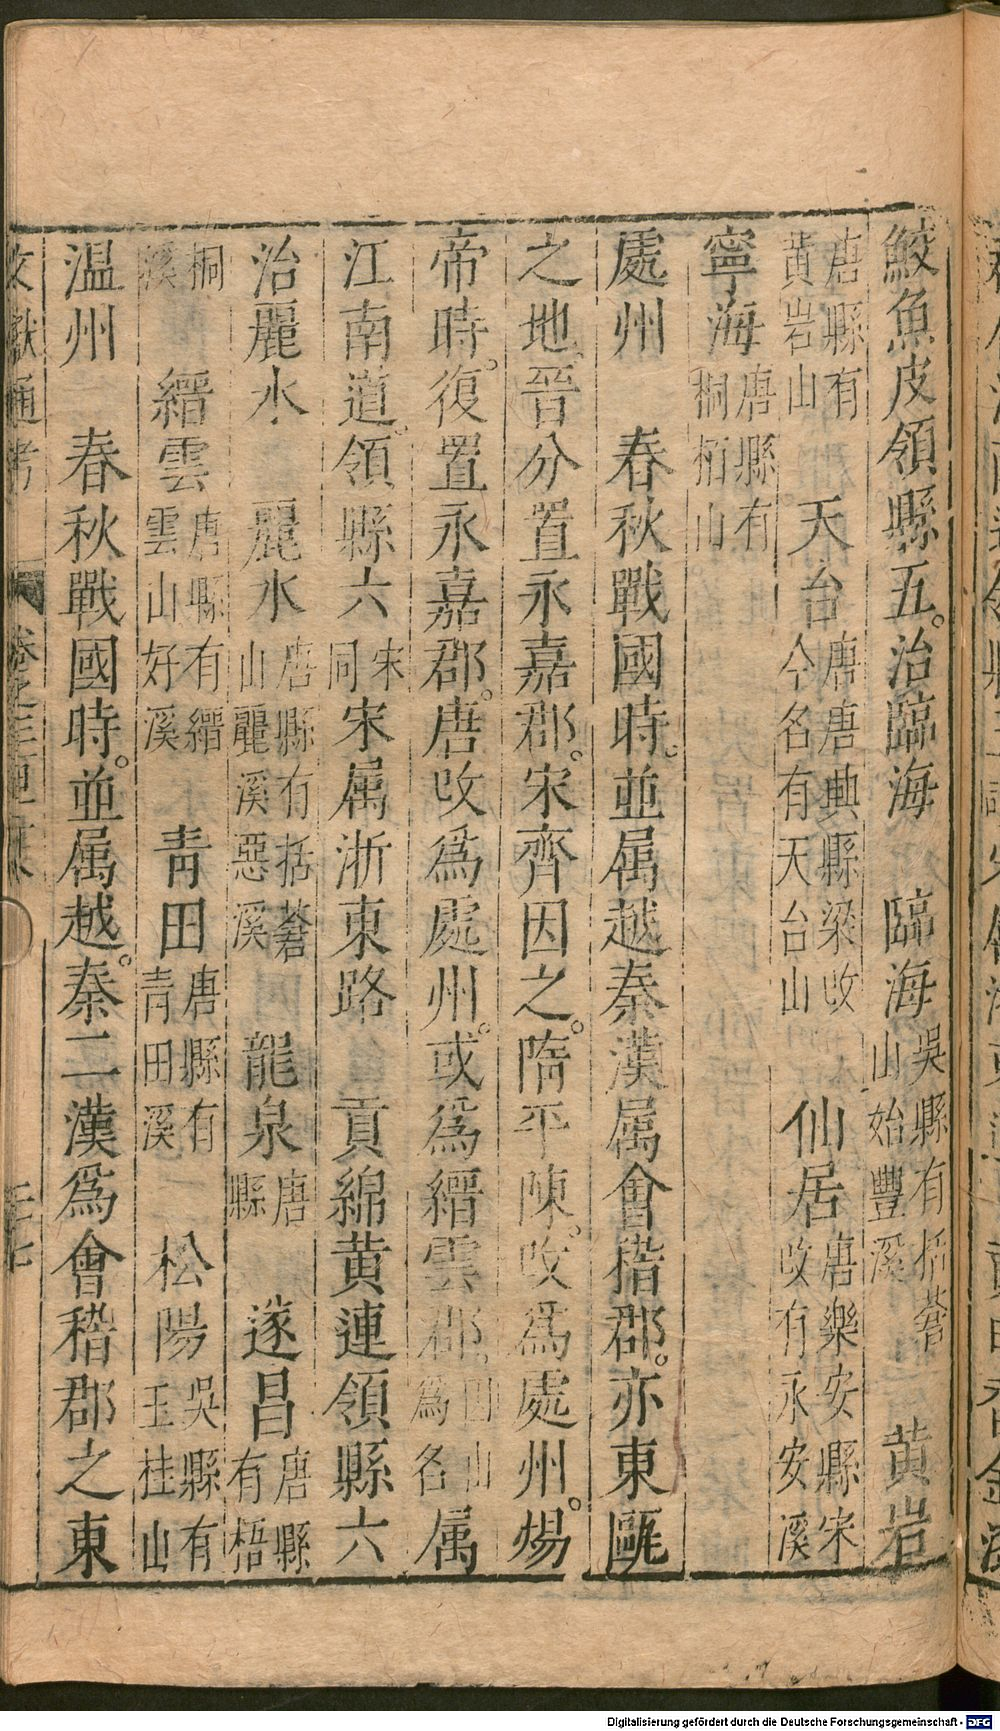 鮫魚皮領縣五治臨海　臨海吳縣有括蒼山始豐溪　黄岩
唐縣有黄岩山　天台唐唐興縣梁攺今名有天台山　仙居唐樂安縣宋攺有永安溪
寧海唐縣有桐栢山
處州　春秋戰國時並属越秦漢属會稽郡亦東甌
之地晉分置永嘉郡宋齊因之隋平陳攺爲處州煬
帝時復置永嘉郡唐攺爲處州或爲縉雲郡因山爲名属
江南道領縣六宋同宋属浙東路　貢綿黄連領縣六
治麗水　麗水唐縣有括蒼山麗溪惡溪　龍泉唐縣　遂昌唐縣有梧
桐溪　縉雲唐縣有縉雲山好溪　青田唐縣有青田溪　松陽吳縣有玉桂山
温州　春秋戰國時並属越秦二漢爲會稽郡之東
文獻通考　卷之三百
Digitalisierung gefördert durch die Deutsche Forschungsgemeinschaft - DFG